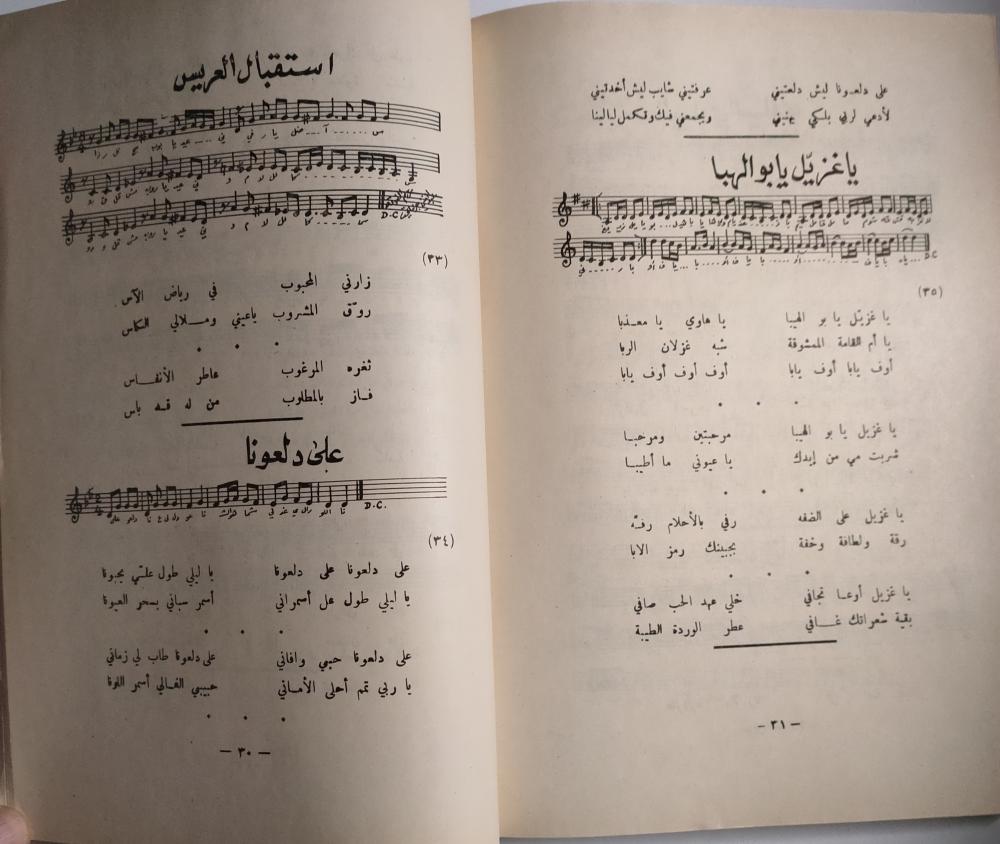 استقبال العريس
D.C.
(٣٣)
زارني المحبوب في رياض الآس
روّق المشروب ياعيني ومـلالي الكاس
• • •
ثغره المرغوب عاطر الأنفـاس
فـاز بالمطلوب من له قـد باس
على دلعونا
D.C.
(٣٤)
على دلعونا على دلعونا يا ليلي طول علّي يجبونا
يا ليلي طول عل أسمراني أسمر سباني بسحر العيونا
• • •
على دلعونا حبي وافاني على دلعونا طاب لي زماني
يا ربي تمم أحلى الأماني حبيبي الغـالي أسمر اللونا
• • •
— ٣٠ —
على دلعونا ليش دلعتيني عرفتيني شايب ليش أخدتيني
لأدعي لربي بلكي ويجمعني فيك وتكمل ليالينا
ياغزيّل يابو الهبا
D.C
(٣٥)
يا غزيّل يا بو الهيبا يا هاوي يا معـذبا
يا أم القامة الممشوقة شبه غزلان الربا
أوف يابا أوف يابا أوف أوف أوف يابا
• • •
يا غزيل يا بو الهيبا مرحبتين ومرحبـا
شربت مي من إيدك يا عيوني ما أطيبـا
• • •
يا غزيل على الضفه رفي بالأحلام رفـّه
رقة ولطافة وخفة بجبينك رمز الابا
• • •
يا غزيل أوعـا تجافي خلي عهد الحب صافي
بقية شعراتك غـافي عطر الوردة الطيبة
— ٣١ —